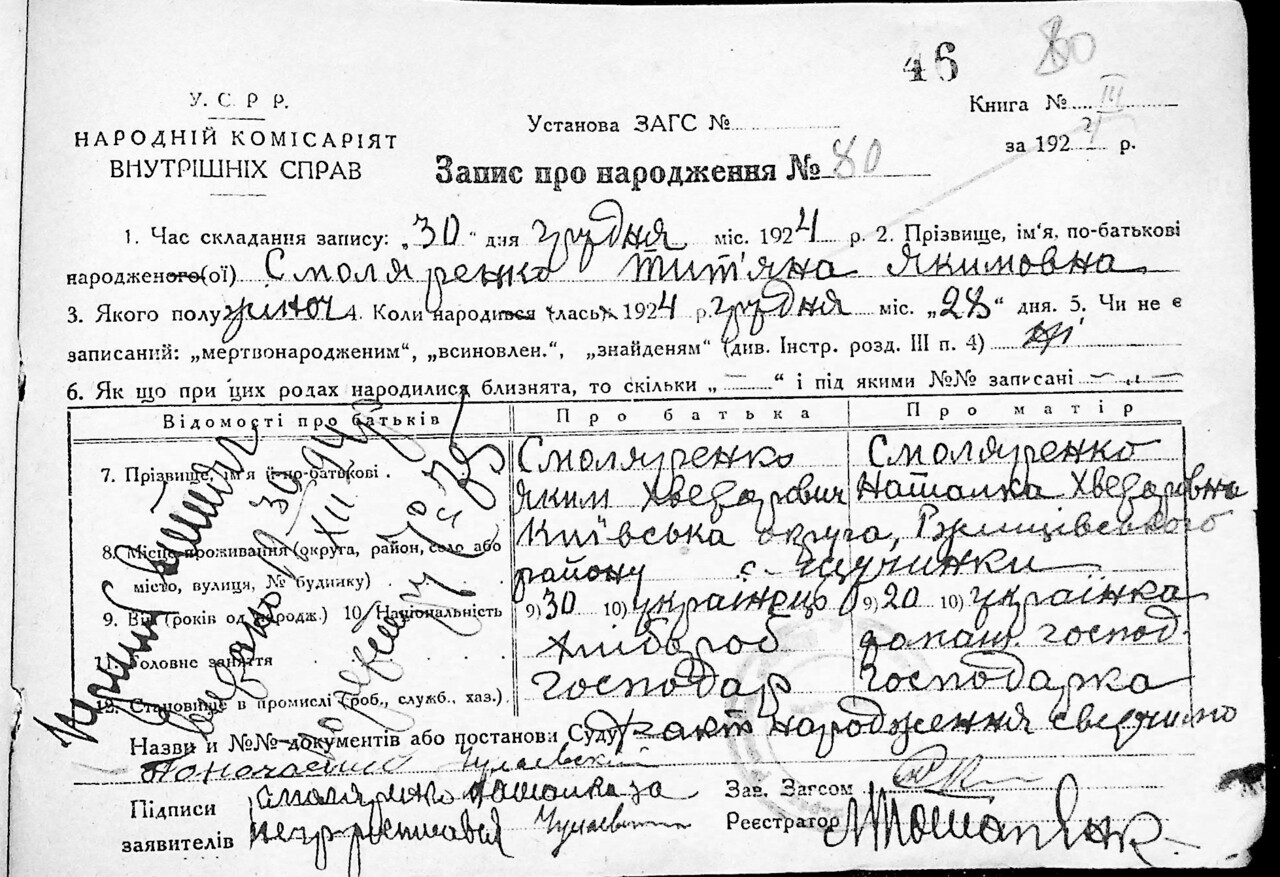 46 80
У. С. Р. Р.
НАРОДНІЙ КОМІСАРІЯТ
ВНУТРІШНІХ СПРАВ
Установа ЗАГС №
Книга № III
за 1924 р.
Запис про народження № 80
1. Час складання запису: „30“ дня грудня міс. 1924 р. 2. Прізвище, ім'я, по-батькові
народженого(ої) Смоляренко Тит'яна Якимовна
3. Якого полу жіноч 4. Коли народився (лась) 1924 р. грудня міс. „28“ дня. 5. Чи не є
записаний: „мертвонародженим“, „всиновлен.“, „знайденям“ (див. Інстр. розд. III п. 4) ні
6. Як що при цих родах народилися близнята, то скільки „—“ і під якими №№ записані — „ —
Відомості про батьків Про батька Про матір
7. Прізвище, ім'я й по-батькові . Смоляренко Яким Хведарович Смоляренко Наталка Хведаровна
8. Місце проживання (округа, район, село або Київська округа, Ржищівського
місто, вулиця, № будинку) району с. Щучинки
9. Вік (років од народж.) 10. Національність 9) 30 10) українець 9) 20 10) українка
11. Головне заняття хлібороб домаш. господ.
12. Становище в промислі (роб., служб., хаз.) господар господарка
Назви и №№ документів або постанови Суду факт народження свідчимо
Підписи Смоляренко Наталка за
заявителів неграмотна
Зав. Загсом
Реєстратор